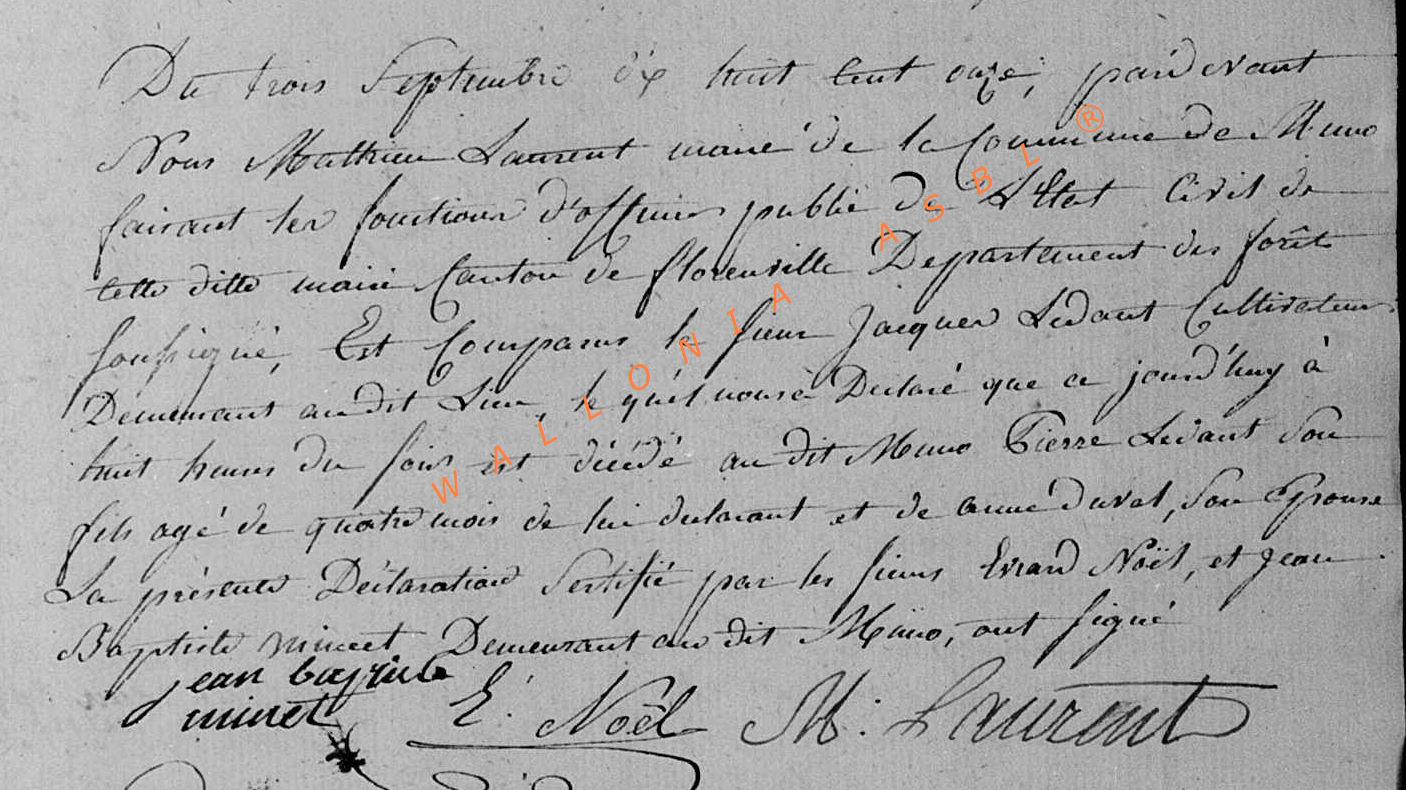 Du trois Septembre dix huit cent onze, pardevant
Nous Mathieu Laurent maire de la Commune de Muno
faisant les fonctions d'officier public de L'Etat Civil de
cette ditte mairie Canton de florenville Departement des forêts
Soussigné, Est Comparus le sieur Jacques Ledant Cultivateur
Demeurant au dit Lieu, le quel nous a Declaré que ce jourd'huy à
huit heures du soir est décédé au dit Muno Pierre Ledant Son
fils agé de quatre mois de lui declarant et de anne duval, Son Epouse
La présente Déclaration Sertifié par les sieurs Evrard Noël, et Jean
Baptiste minet Demeurant au dit Muno, ont signé
jean baptiste
minet E. Noël M. Laurent
WALLONIA ASBL ®